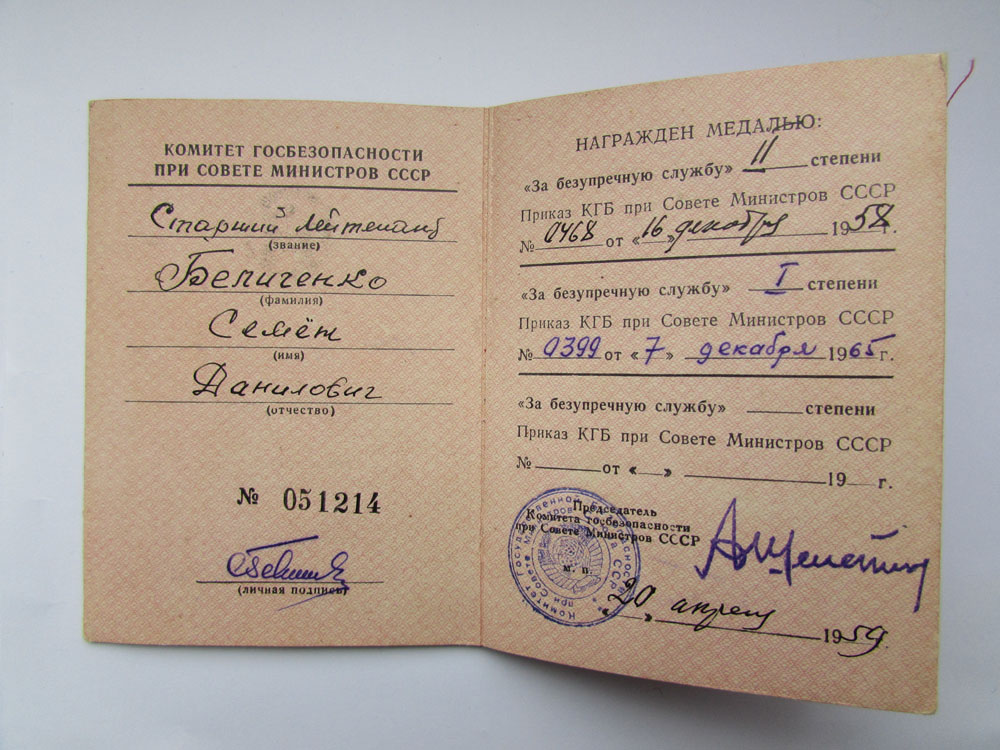 КОМИТЕТ ГОСБЕЗОПАСНОСТИ
ПРИ СОВЕТЕ МИНИСТРОВ СССР
Старший лейтенант
(звание)
Беличенко
(фамилия)
Семён
(имя)
Данилович
(отчество)
№ 051214
(личная подпись)
НАГРАЖДЕН МЕДАЛЬЮ:
«За безупречную службу» II степени
Приказ КГБ при Совете Министров СССР
№ 0468 от «16» декабря 1958 г.
«За безупречную службу» I степени
Приказ КГБ при Совете Министров СССР
№ 0399 от «7» декабря 1965 г.
«За безупречную службу» степени
Приказ КГБ при Совете Министров СССР
№ от « » 19 г.
Председатель
Комитета госбезопасности
при Совете Министров СССР
м. п.
«20» апреля 1959